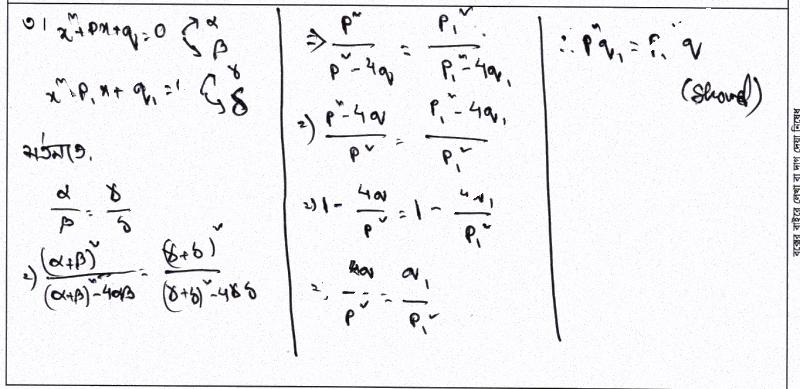 ৩। x²+px+q=0 α β
x²+p₁x+q₁=0 γ δ
শর্তমতে,
α/β = γ/δ
⇒ (α+β)²/((α+β)²-4αβ) = (γ+δ)²/((γ+δ)²-4γδ)
⇒ p²/(p²-4q) = p₁²/(p₁²-4q₁)
⇒ (p²-4q)/p² = (p₁²-4q₁)/p₁²
⇒ 1 - 4q/p² = 1 - 4q₁/p₁²
⇒ 4q/p² = q₁/p₁²
∴ p²q₁ = p₁²q
(Showed)
বক্সের বাইরে লেখা বা দাগ দেয়া নিষেধ